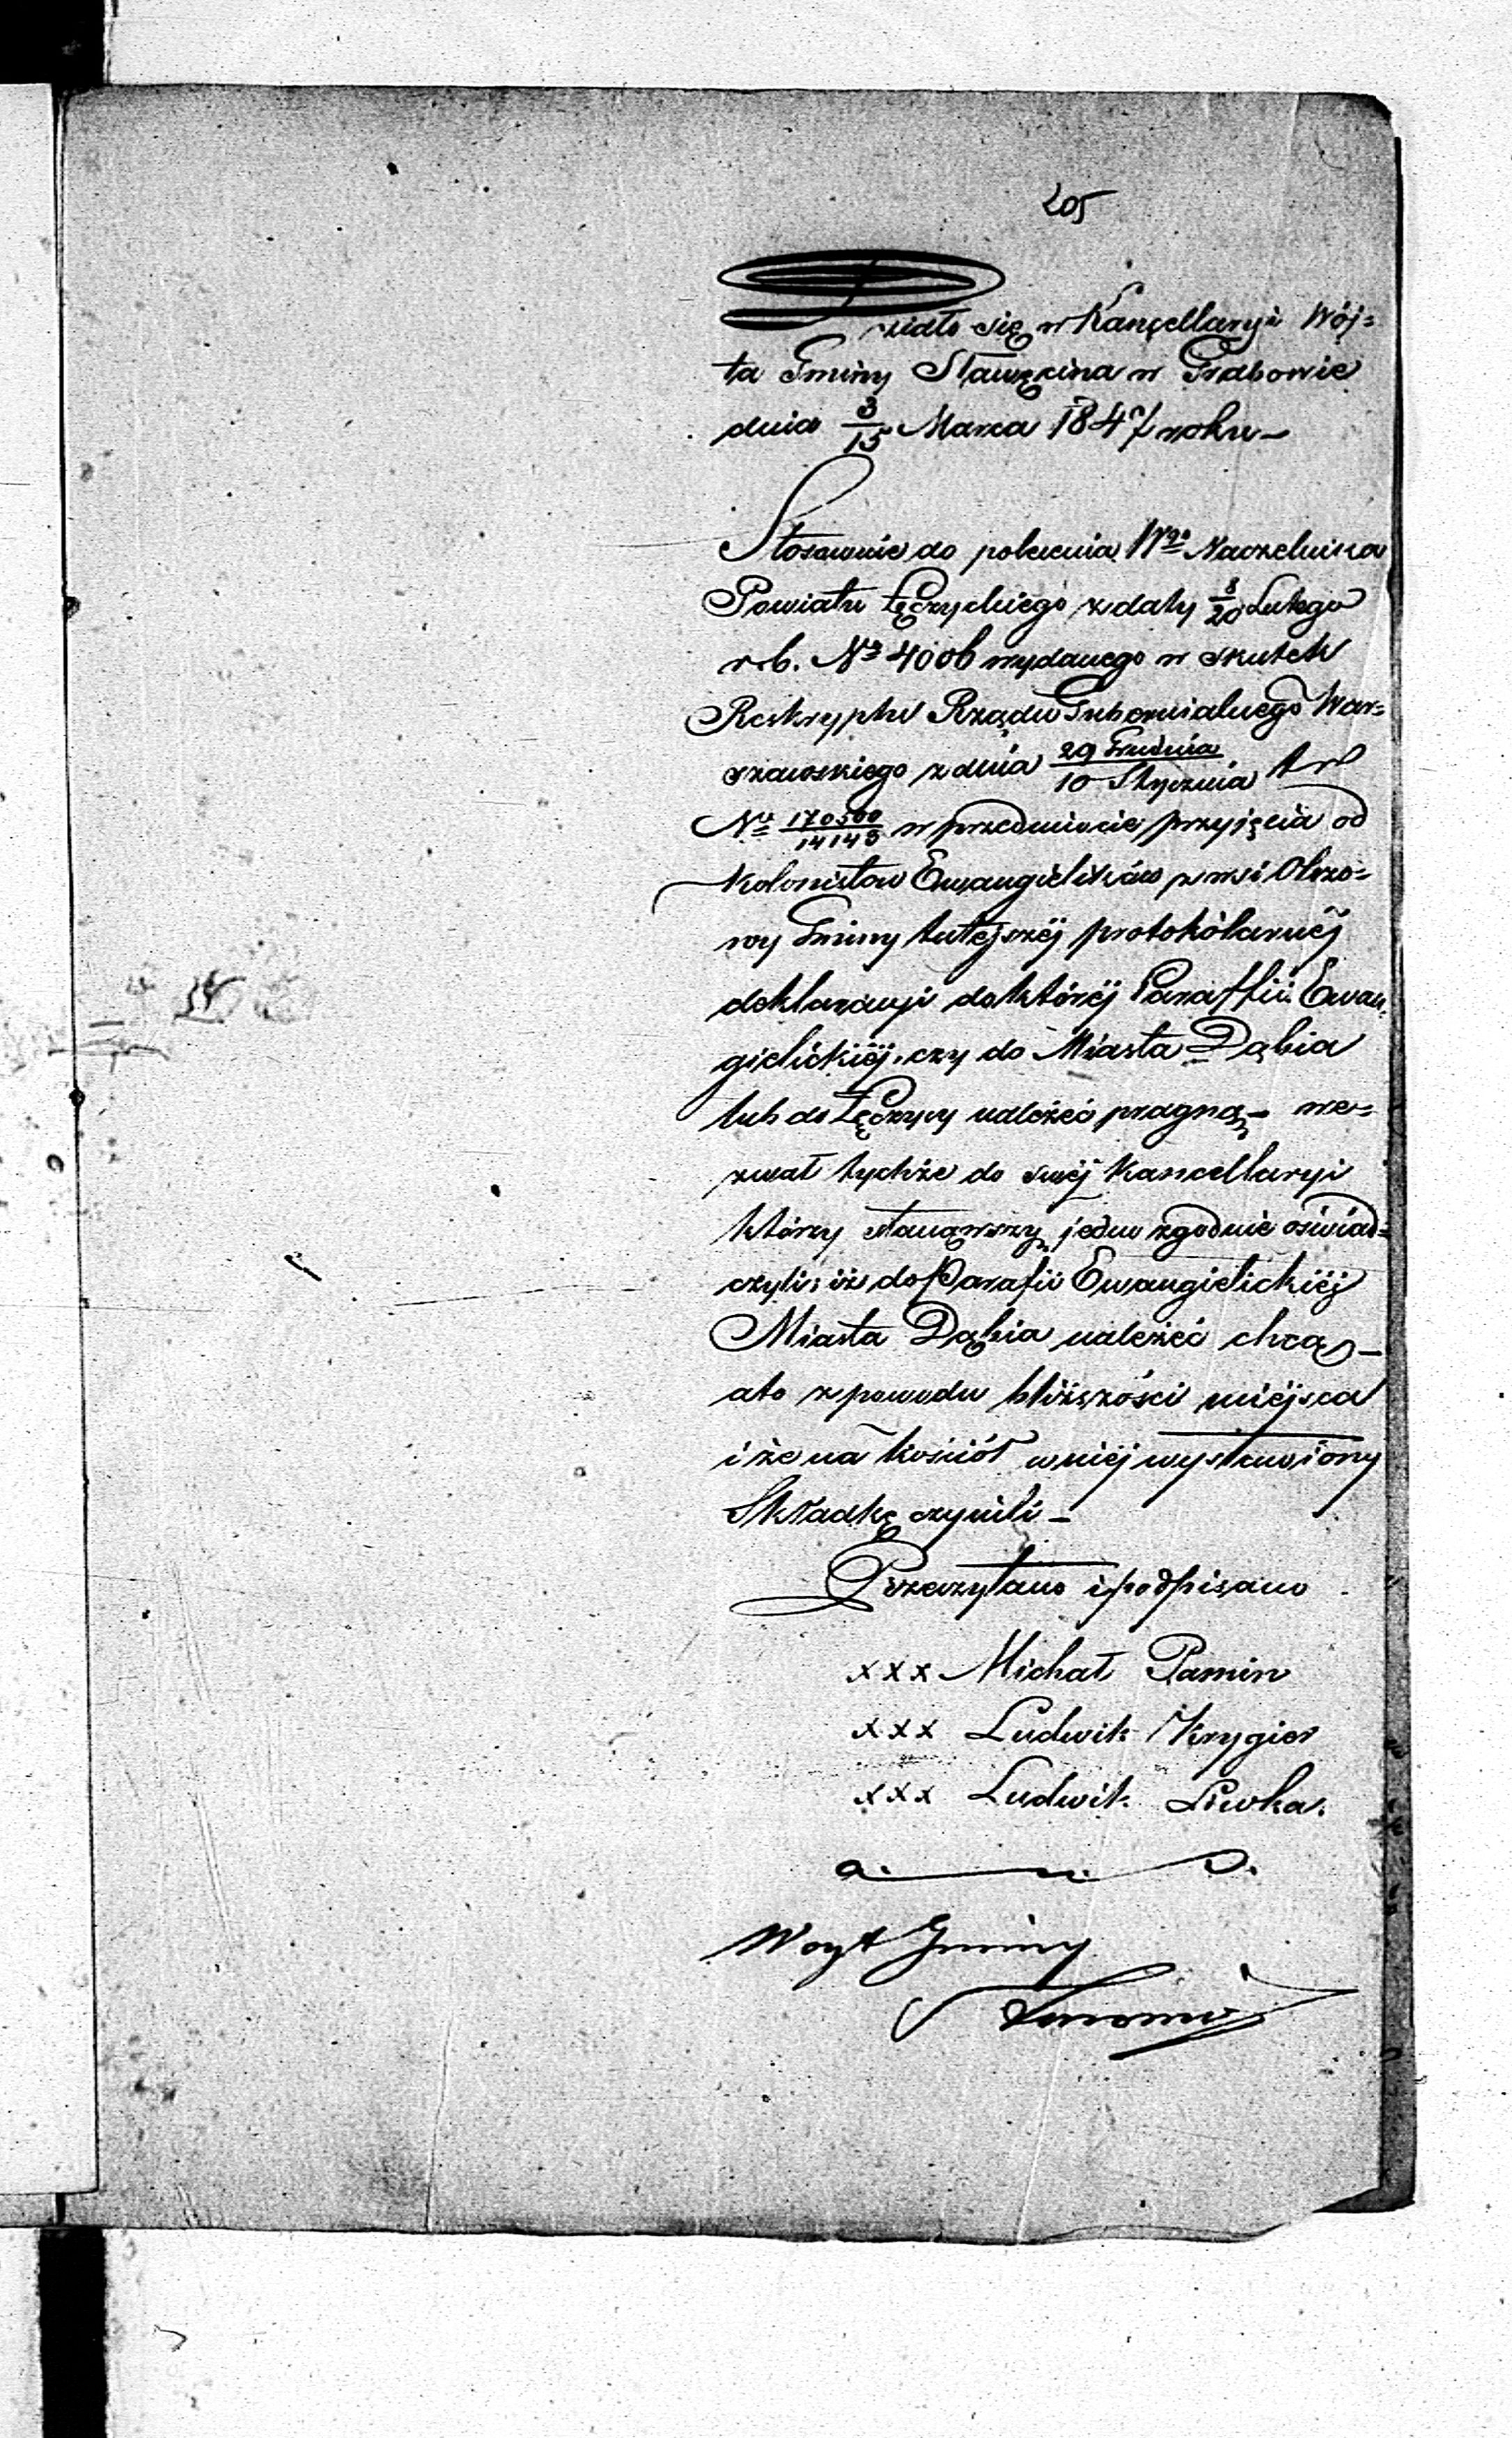 205
Działo się w Kancellaryi Wój=
ta Gminy Stawęcina w Grabowie
dnia 3/15 Marca 1847 roku –
Stosownie do polecenia Wgo Naczelnika
Powiatu Łęczyckiego z daty 8/20 Lutego
r. b. No 4006 wydanego w skutek
Reskryptu Rządu Gubernialnego War=
szawskiego z dnia 29 Grudnia/10 Stycznia
No 170500/14145 w przedmiocie przyjęcia od
Kolonistow Ewangielików z wsi
Gminy tutejszéj protokólarnéj
deklaracyi do któréj Paraffii Ewan=
gielickiéj, czy do Miasta Dąbia
lub do Łęczycy należéć pragną – we=
zwał tychże do swéj Kancellaryi
którzy stanąwszy jedno zgodnie oświad=
czyli; iż do Parafii Ewangielickiéj
Miasta Dąbia należéć chcą –
a to z powodu bliższości miéjsca
i że na kościół w niéj wystawiony
Składkę czynili –
Przeczytano i podpisano
xxx Michał Pamin
xxx Ludwik Krygier
xxx Ludwik Liwka.
Woyt Gminy